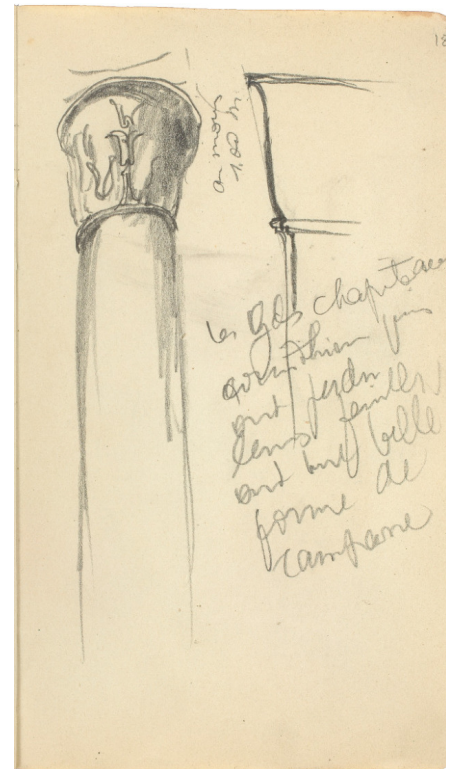 18
au moins
1.00 m.
les gds chapiteaux
corinthiens qui
ont perdu
leurs feuilles
ont une belle
forme de
campane